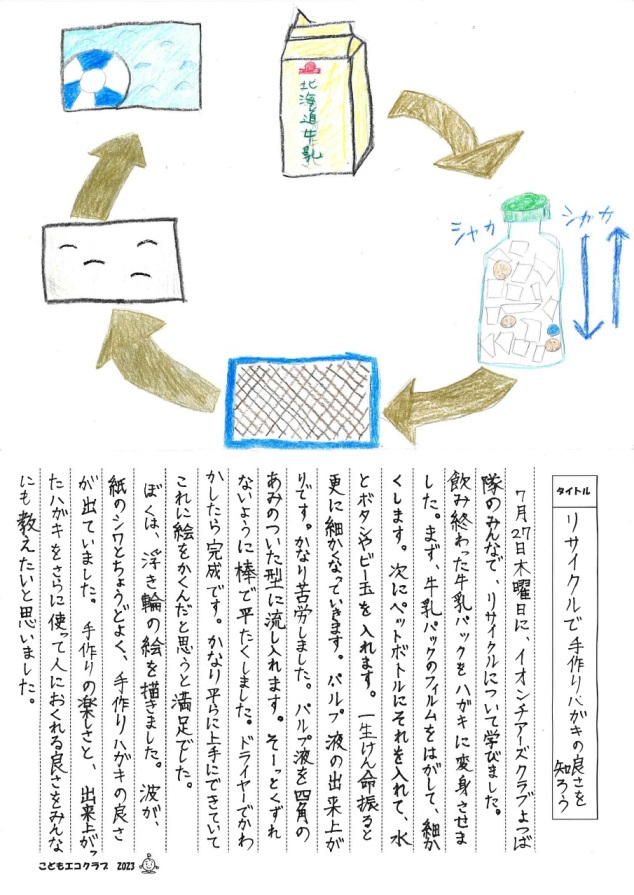 北海道牛乳
シャカ
シャカ
タイトル
リサイクルで手作りハガキの良さを
知ろう
7月27日木曜日に、イオンチアーズクラブよつば
隊のみんなで、リサイクルについて学びました。
飲み終わった牛乳パックをハガキに変身させま
した。まず、牛乳パックのフィルムをはがして、細か
くします。次にペットボトルにそれを入れて、水
とボタンやビー玉を入れます。一生けん命振ると
更に細かくなっていきます。パルプ液の出来上が
りです。かなり苦労しました。パルプ液を四角の
あみのついた型に流し入れます。そーっとくずれ
ないように棒で平たくしました。ドライヤーでかわ
かしたら完成です。かなり平らに上手にできていて
これに絵をかくんだと思うと満足でした。
ぼくは、浮き輪の絵を描きました。波が、
紙のシワとちょうどよく、手作りハガキの良さ
が出ていました。手作りの楽しさと、出来上がっ
たハガキをさらに使って人におくれる良さをみんな
にも教えたいと思いました。
こどもエコクラブ 2023